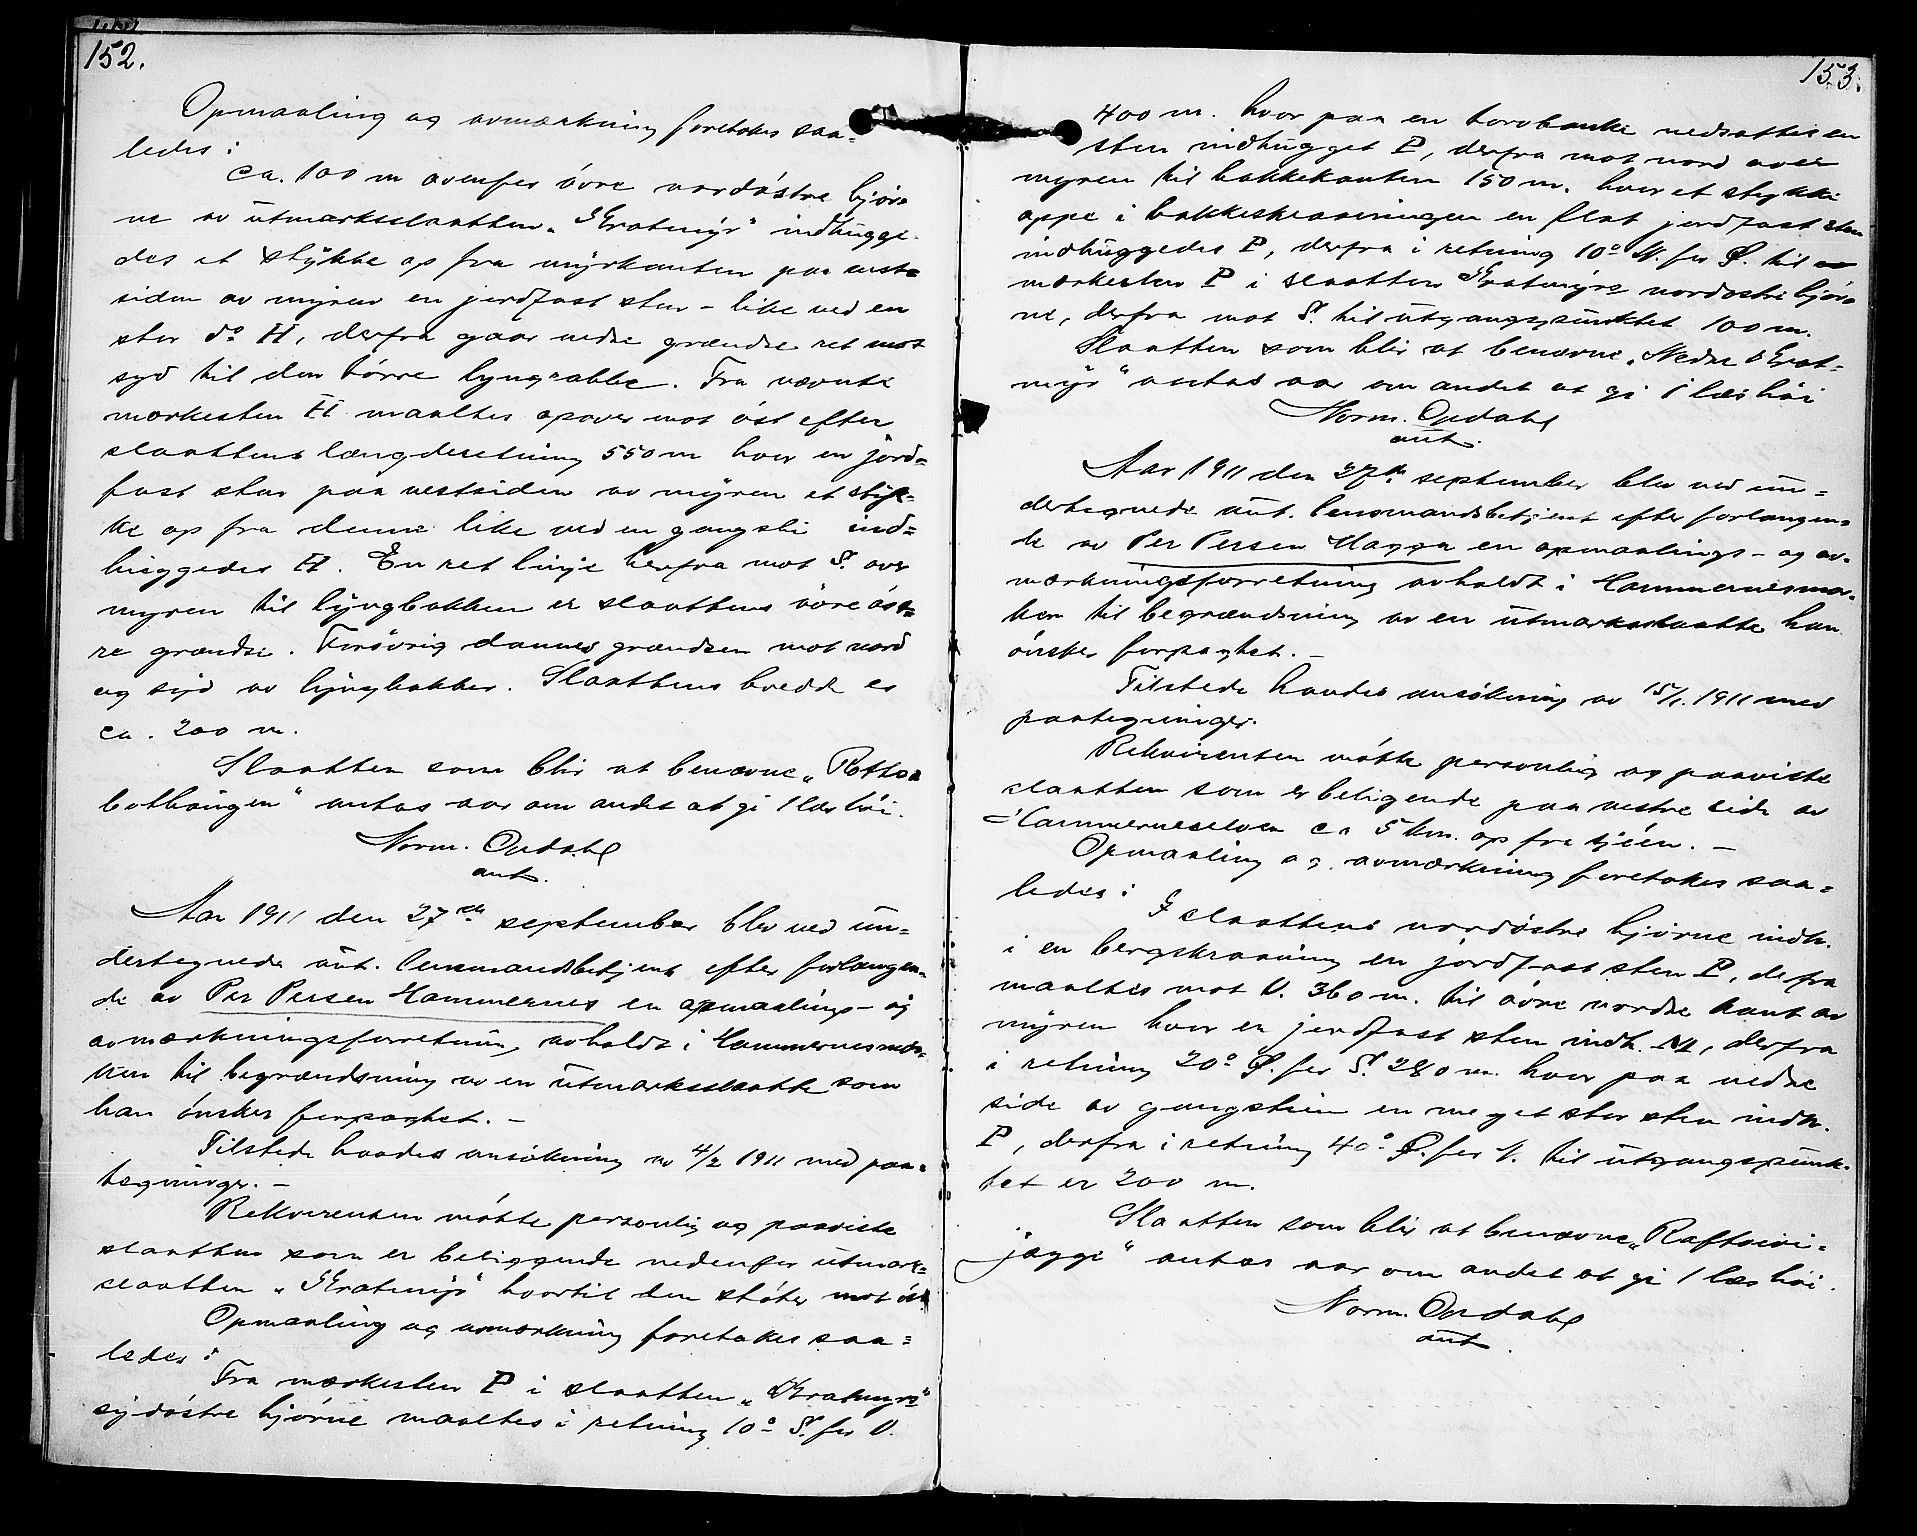 152.
Opmaaling og avmærkning foretokes saa-
ledes:
ca. 100 m ovenfor övre nordöstre hjör-
ne av utmarksslaatten „Kratmyr" indhugge-
des et stykke op fra myrkanten paa vest-
siden av myren en jordfast sten - like ved en
stor do H, derfra gaar nedre grændse ret mot
syd til den törre lyngrabbe. Fra nævnte
merkesten H maaltes opover mot öst efter
slaattens længderetning 550 m hvor en jord-
fast sten paa vestsiden av myren et styk-
ke op fra denne like ved en gangsti ind-
huggedes H. En ret linje herfra mot S. over
myren til lyngbakken er slaattens övre öst-
re grændse. Forövrig dannes grændsen mot nord
og syd av lyngbakker. Slaattens bredde er
ca. 200 m.
Slaatten som blir at benævne „
" antas aar om andet at gi 1 læs höi.
Norm. Opdahl
aut.
Aar 1911 den 27de september blev ved un-
dertegnede aut. lensmandsbetjent efter forlangen-
de av Per Persen Hammernes en opmaalings- og
avmærkningsforretning avholdt i Hammernesmar-
ken til begrændsning av en utmarksslaatte som
han önsker forpagtet. -
Tilstede havdes ansökning av 4/2 1911 med paa-
tegninger. -
Rekvirenten mötte personlig og paaviste
slaatten som er beliggende nedenfor utmark-
slaatten „Kratmyr" hvortil den stöter mot öst.
Opmaaling og avmærkning foretokes saa-
ledes:
Fra mærkesten P i slaatten „Kratmyrs"
sydöstre hjörne maaltes i retning 10° S. for V.
153.
400 m. hvor paa en torvbanke nedsattes en
sten indhugget P, derfra mot nord over
myren til bakkekanten 150 m. hvor et stykke
oppe i bakkeskraaningen en flat jordfast sten
indhuggedes P, derfra i retning 10° N. for Ø. til
mærkesten P i slaatten Kratmyrs nordöstre hjör-
ne, derfra mot S. til utgangspunktet 100 m.
Slaatten som blir at benævne „Nedre Krat-
myr" antas aar om andet at gi 1 læs höi
Norm. Opdahl
aut.
Aar 1911 den 27de september blev ved un-
dertegnede aut. lensmandsbetjent efter forlangen-
de av Per Persen Hagga en opmaalings- og av-
mærkningsforretning avholdt i Hammernesmar-
ken til begrændsning av en utmarksslaatte han
önsker forpagtet. -
Tilstede havdes ansökning av 15/1. 1911 med
paategninger.
Rekvirenten mötte personlig og paaviste
slaatten som er beliggende paa vestre side av
Hammerneselven ca 5 km. op fra sjöen. -
Opmaaling og avmærkning foretokes saa-
ledes:
I slaattens nordöstre hjörne indh.
i en bergskraaning en jordfast sten P, derfra
maaltes mot V. 360 m. til övre nordre kant av
myren hvor en jordfast sten indh. M, derfra
i retning 20° Ø. for S. 280 m. hvor paa nedre
side av gangstien en meget stor sten indh.
P, derfra i retning 40° Ø. for N. til utgangspunk-
tet er 200 m.
Slaatten som blir at benævne „Raftsivi-
jægge" antas aar om andet at gi 1 læs höi.
Norm. Opdahl
aut.